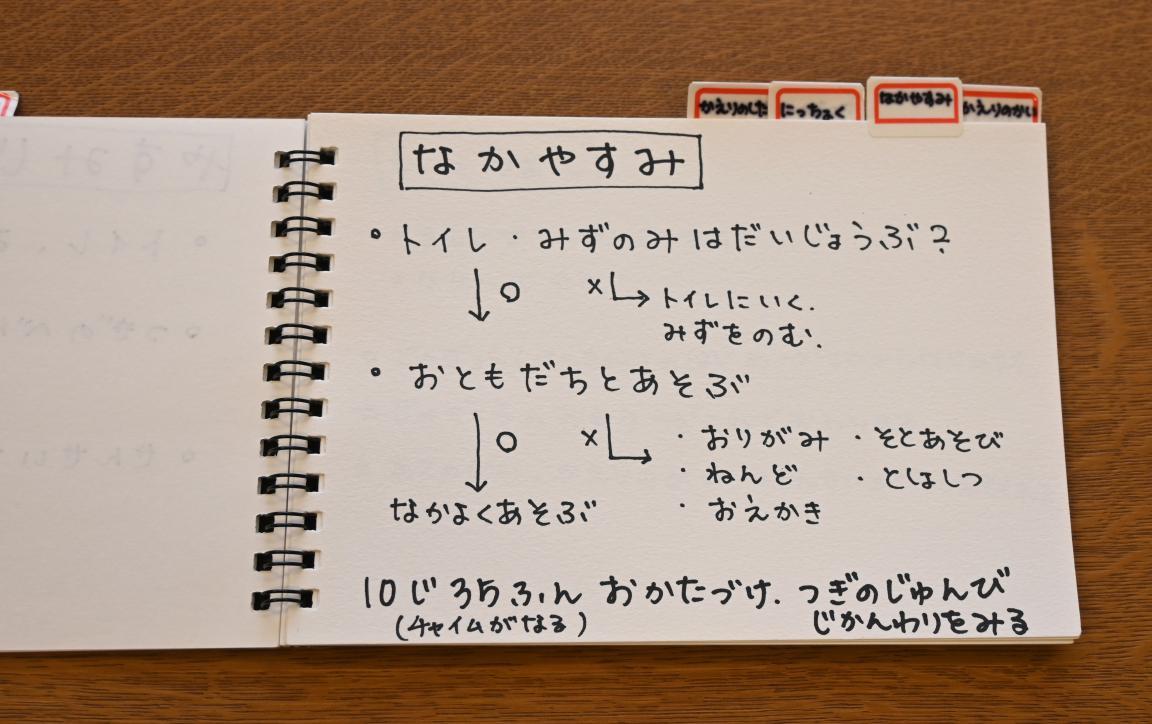 かえりのした
にっちょく
なかやすみ
かえりのかい
なかやすみ
• トイレ・みずのみはだいじょうぶ?
↓ ○ × → トイレにいく.
みずをのむ.
• おともだちとあそぶ
↓ ○ × → ・おりがみ ・そとあそび
・ねんど ・としょしつ
なかよくあそぶ ・おえかき
10じ35ふん おかたづけ. つぎのじゅんび
(チャイムがなる) じかんわりをみる